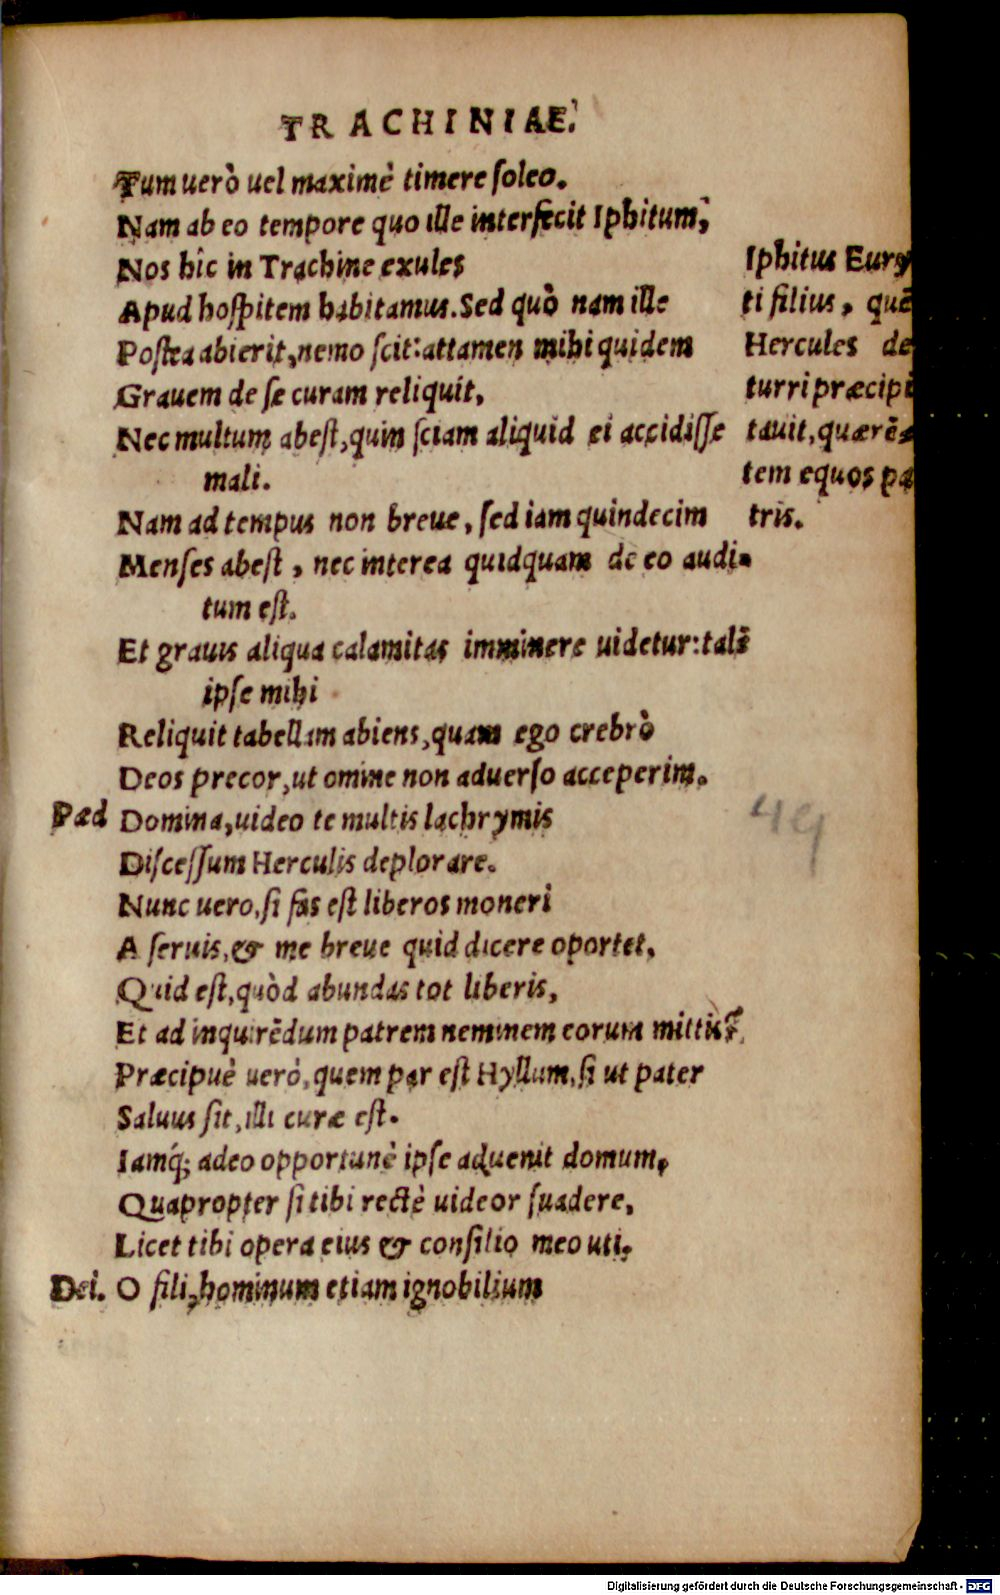 TRACHINIAE.
Tum uerò uel maximè timere soleo.
Nam ab eo tempore quo ille interfecit Iphitum,
Nos hîc in Trachine exules
Apud hospitem habitamus. Sed quò nam ille
Postea abierit, nemo scit: attamen mihi quidem
Grauem de se curam reliquit,
Nec multum abest, quin sciam aliquid ei accidisse
mali.
Nam ad tempus non breue, sed iam quindecim
Menses abest, nec interea quidquam de eo audi-
tum est.
Et grauis aliqua calamitas imminere uidetur: talē
ipse mihi
Reliquit tabellam abiens, quam ego crebrò
Deos precor, ut omine non aduerso acceperim.
Pæd Domina, uideo te multis lachrymis
Discessum Herculis deplorare.
Nunc uero, si fas est liberos moneri
A seruis, & me breue quid dicere oportet,
Quid est, quòd abundas tot liberis,
Et ad inquirēdum patrem neminem eorum mittis?
Præcipuè uerò, quem par est Hyllum, si ut pater
Saluus sit, illi curæ est.
Iamq́; adeo opportunè ipse aduenit domum,
Quapropter si tibi rectè uideor suadere,
Licet tibi opera eius & consilio meo uti.
Dei. O fili, hominum etiam ignobilium
Iphitus Eury
ti filius, quē
Hercules de
turri præcipi
tauit, quærē-
tem equos pa
tris.
49
Digitalisierung gefördert durch die Deutsche Forschungsgemeinschaft - DFG